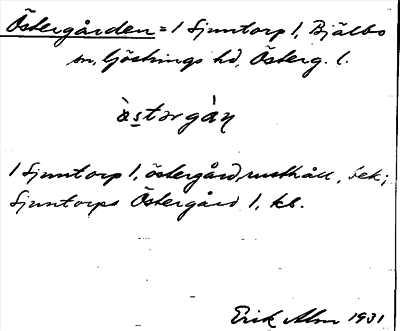 Östergården = 1 Sjuntorp 1, Bjälbo
sn, Göstrings hd, Österg. l.
àstərgán
1 Sjuntorp 1, östergård, rusthåll, bek;
Sjuntorps Östergård 1, kb.
Erik Alm 1931